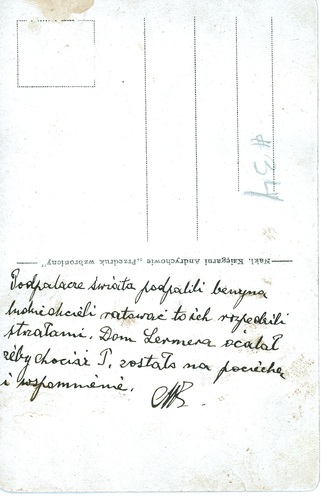 #34
Nakł. Księgarni Andrychowie „Przedruk wzbroniony"
Podpalacze świata podpalili benzyną
ludzie chcieli ratować to ich rozpędzili
strzałami. Dom Lermera ocalał
żeby chociaż P. została na pociechę
i wspomnienie.